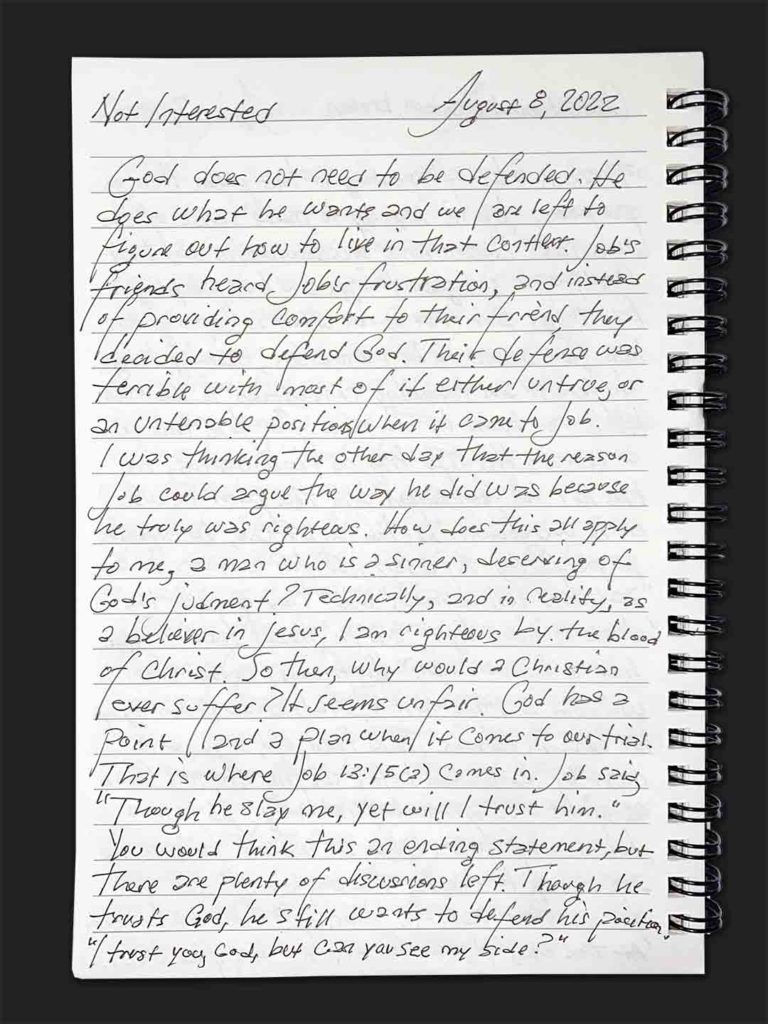 Not Interested August 8, 2022
God does not need to be defended. He
does what he wants and we are left to
figure out how to live in that context. Job's
friends heard Job's frustration, and instead
of providing comfort to their friend, they
decided to defend God. Their defense was
terrible with most of it either untrue, or
an untenable position when it came to Job.
I was thinking the other day that the reason
Job could argue the way he did was because
he truly was righteous. How does this all apply
to me, a man who is a sinner, deserving of
God's judment? Technically, and in reality, as
a believer in Jesus, I am righteous by the blood
of Christ. So then, why would a Christian
ever suffer? It seems unfair. God has a
point and a plan when it comes to our trial.
That is where Job 13:15(a) comes in. Job said,
"Though he slay me, yet will I trust him."
You would think this an ending statement, but
there are plenty of discussions left. Though he
trusts God, he still wants to defend his position.
"I trust you, God, but can you see my side?"